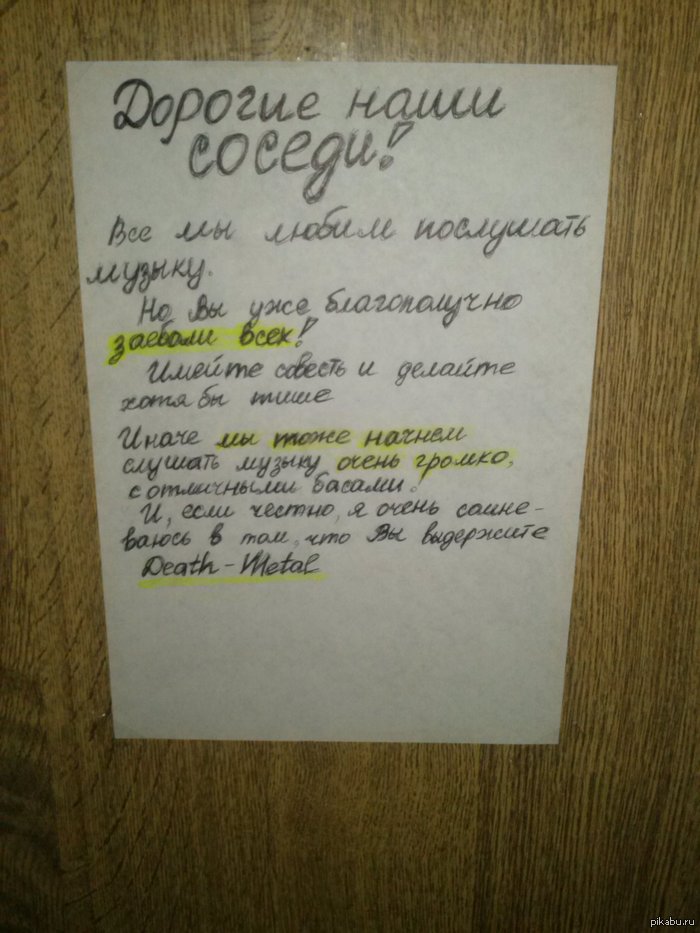 Дорогие наши
соседи!
Все мы любим послушать
музыку.
Но Вы уже благополучно
заебали всех!
Имейте совесть и делайте
хотя бы тише
Иначе мы тоже начнем
слушать музыку очень громко,
с отличными басами!
И, если честно, я очень сомне-
ваюсь в том, что Вы выдержите
Death-Metal
pikabu.ru